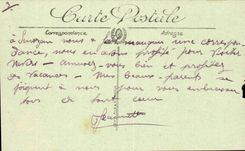 Carte Postale
Correspondance Adresse
à nous manquer une correspon
dance, nous en avons profité pour visiter
amusez vous bien et profitez
des vacances - Mes beaux-parents se
joignent à nous pour vous embrasser
tous de tout cœur
Jeannette